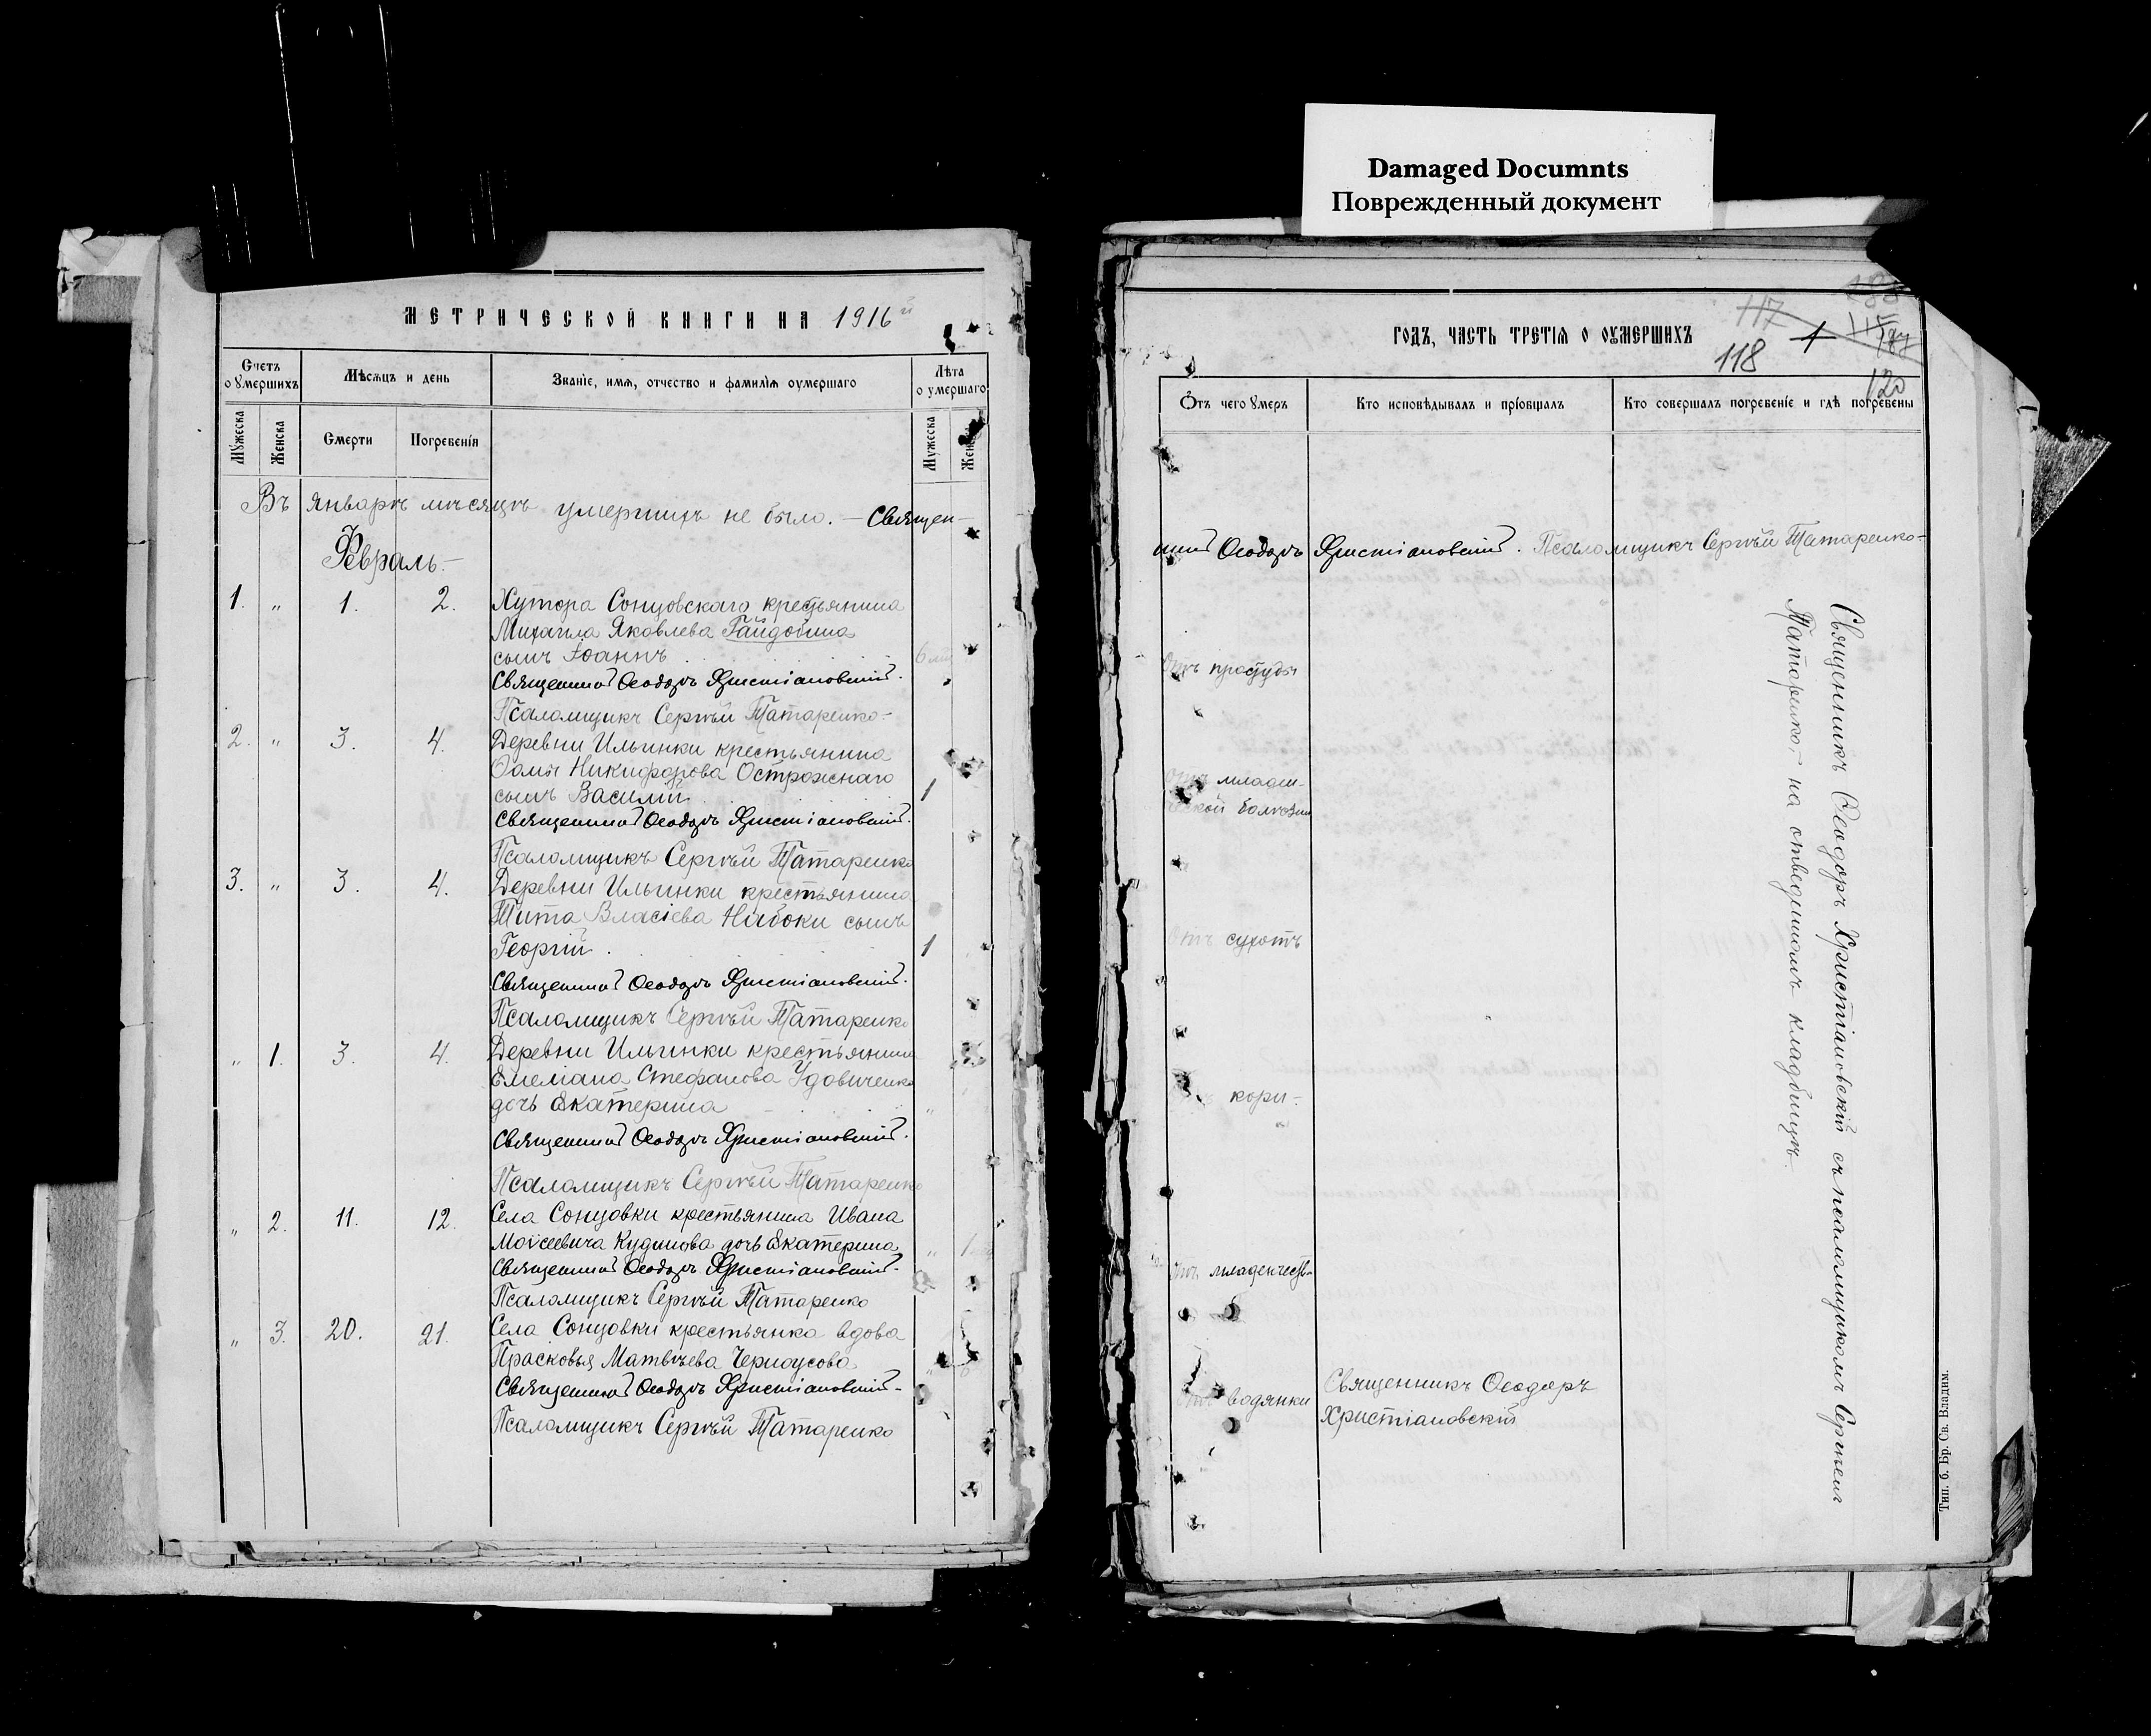 Damaged Documnts
Поврежденный документ
МЕТРИЧЕСКОЙ КНИГИ НА 1916й
Счетъ оумершихъ
Мѣсяцъ и день
Званїе, имя, отчество и фамилїя оумершаго
Лѣта оумершаго
Мужеска
Женска
Смерти
Погребенїя
Мужеска
Женска
Въ январѣ мѣсяцѣ умершихъ не было. — Священ-
Февраль.-
1. " 1. 2. Хутора Сонцовскаго крестьянина
Михаила Яковлева Гайдобина
сынъ Іоаннъ
Священникъ Ѳеодоръ Христіановскій.
Псаломщикъ Сергѣй Татаренко-
2. " 3. 4. Деревни Ильинки крестьянина
Ѳомы Никифорова Острожнаго
сынъ Василій 1
Священникъ Ѳеодоръ Христіановскій.
Псаломщикъ Сергѣй Татаренко
3. " 3. 4. Деревни Ильинки крестьянина
Тита Власіева Набоки сынъ
Георгій. 1
Священникъ Ѳеодоръ Христіановскій.
Псаломщикъ Сергѣй Татаренко
" 1. 3. 4. Деревни Ильинки крестьянина
Емеліана Стефанова Удовиченко
дочь Екатерина "
Священникъ Ѳеодоръ Христіановскій.
Псаломщикъ Сергѣй Татаренко
" 2. 11. 12. Села Сонцовки крестьянина Ивана
Моисеевича Кудинова дочь Екатерина " 1
Священникъ Ѳеодоръ Христіановскій.
Псаломщикъ Сергѣй Татаренко
" 3. 20. 21. Села Сонцовки крестьянка вдова
Прасковья Матвѣева Черноусова
Священникъ Ѳеодоръ Христіановскій.
Псаломщикъ Сергѣй Татаренко
ГОДЪ, ЧАСТЬ ТРЕТІЯ О ОУМЕРШИХЪ
117
118
1
120
Ѿ чего умеръ
Кто исповѣдывалъ и прїобщалъ
Кто совершалъ погребенїе и гдѣ погребены
никъ Ѳеодоръ Христіановскій. Псаломщикъ Сергѣй Татаренко-
Отъ простуды
Отъ младен-
ской болѣзни
Отъ сухотъ
кори-
Отъ младенчеств-
Отъ водянки
Священникъ Ѳеодоръ
Христіановскій
Священникъ Ѳеодоръ Христіановскій съ псаломщикомъ Сергѣемъ
Татаренко,- на отведенномъ кладбищѣ.
Тип. б. Бр. Св. Владим.